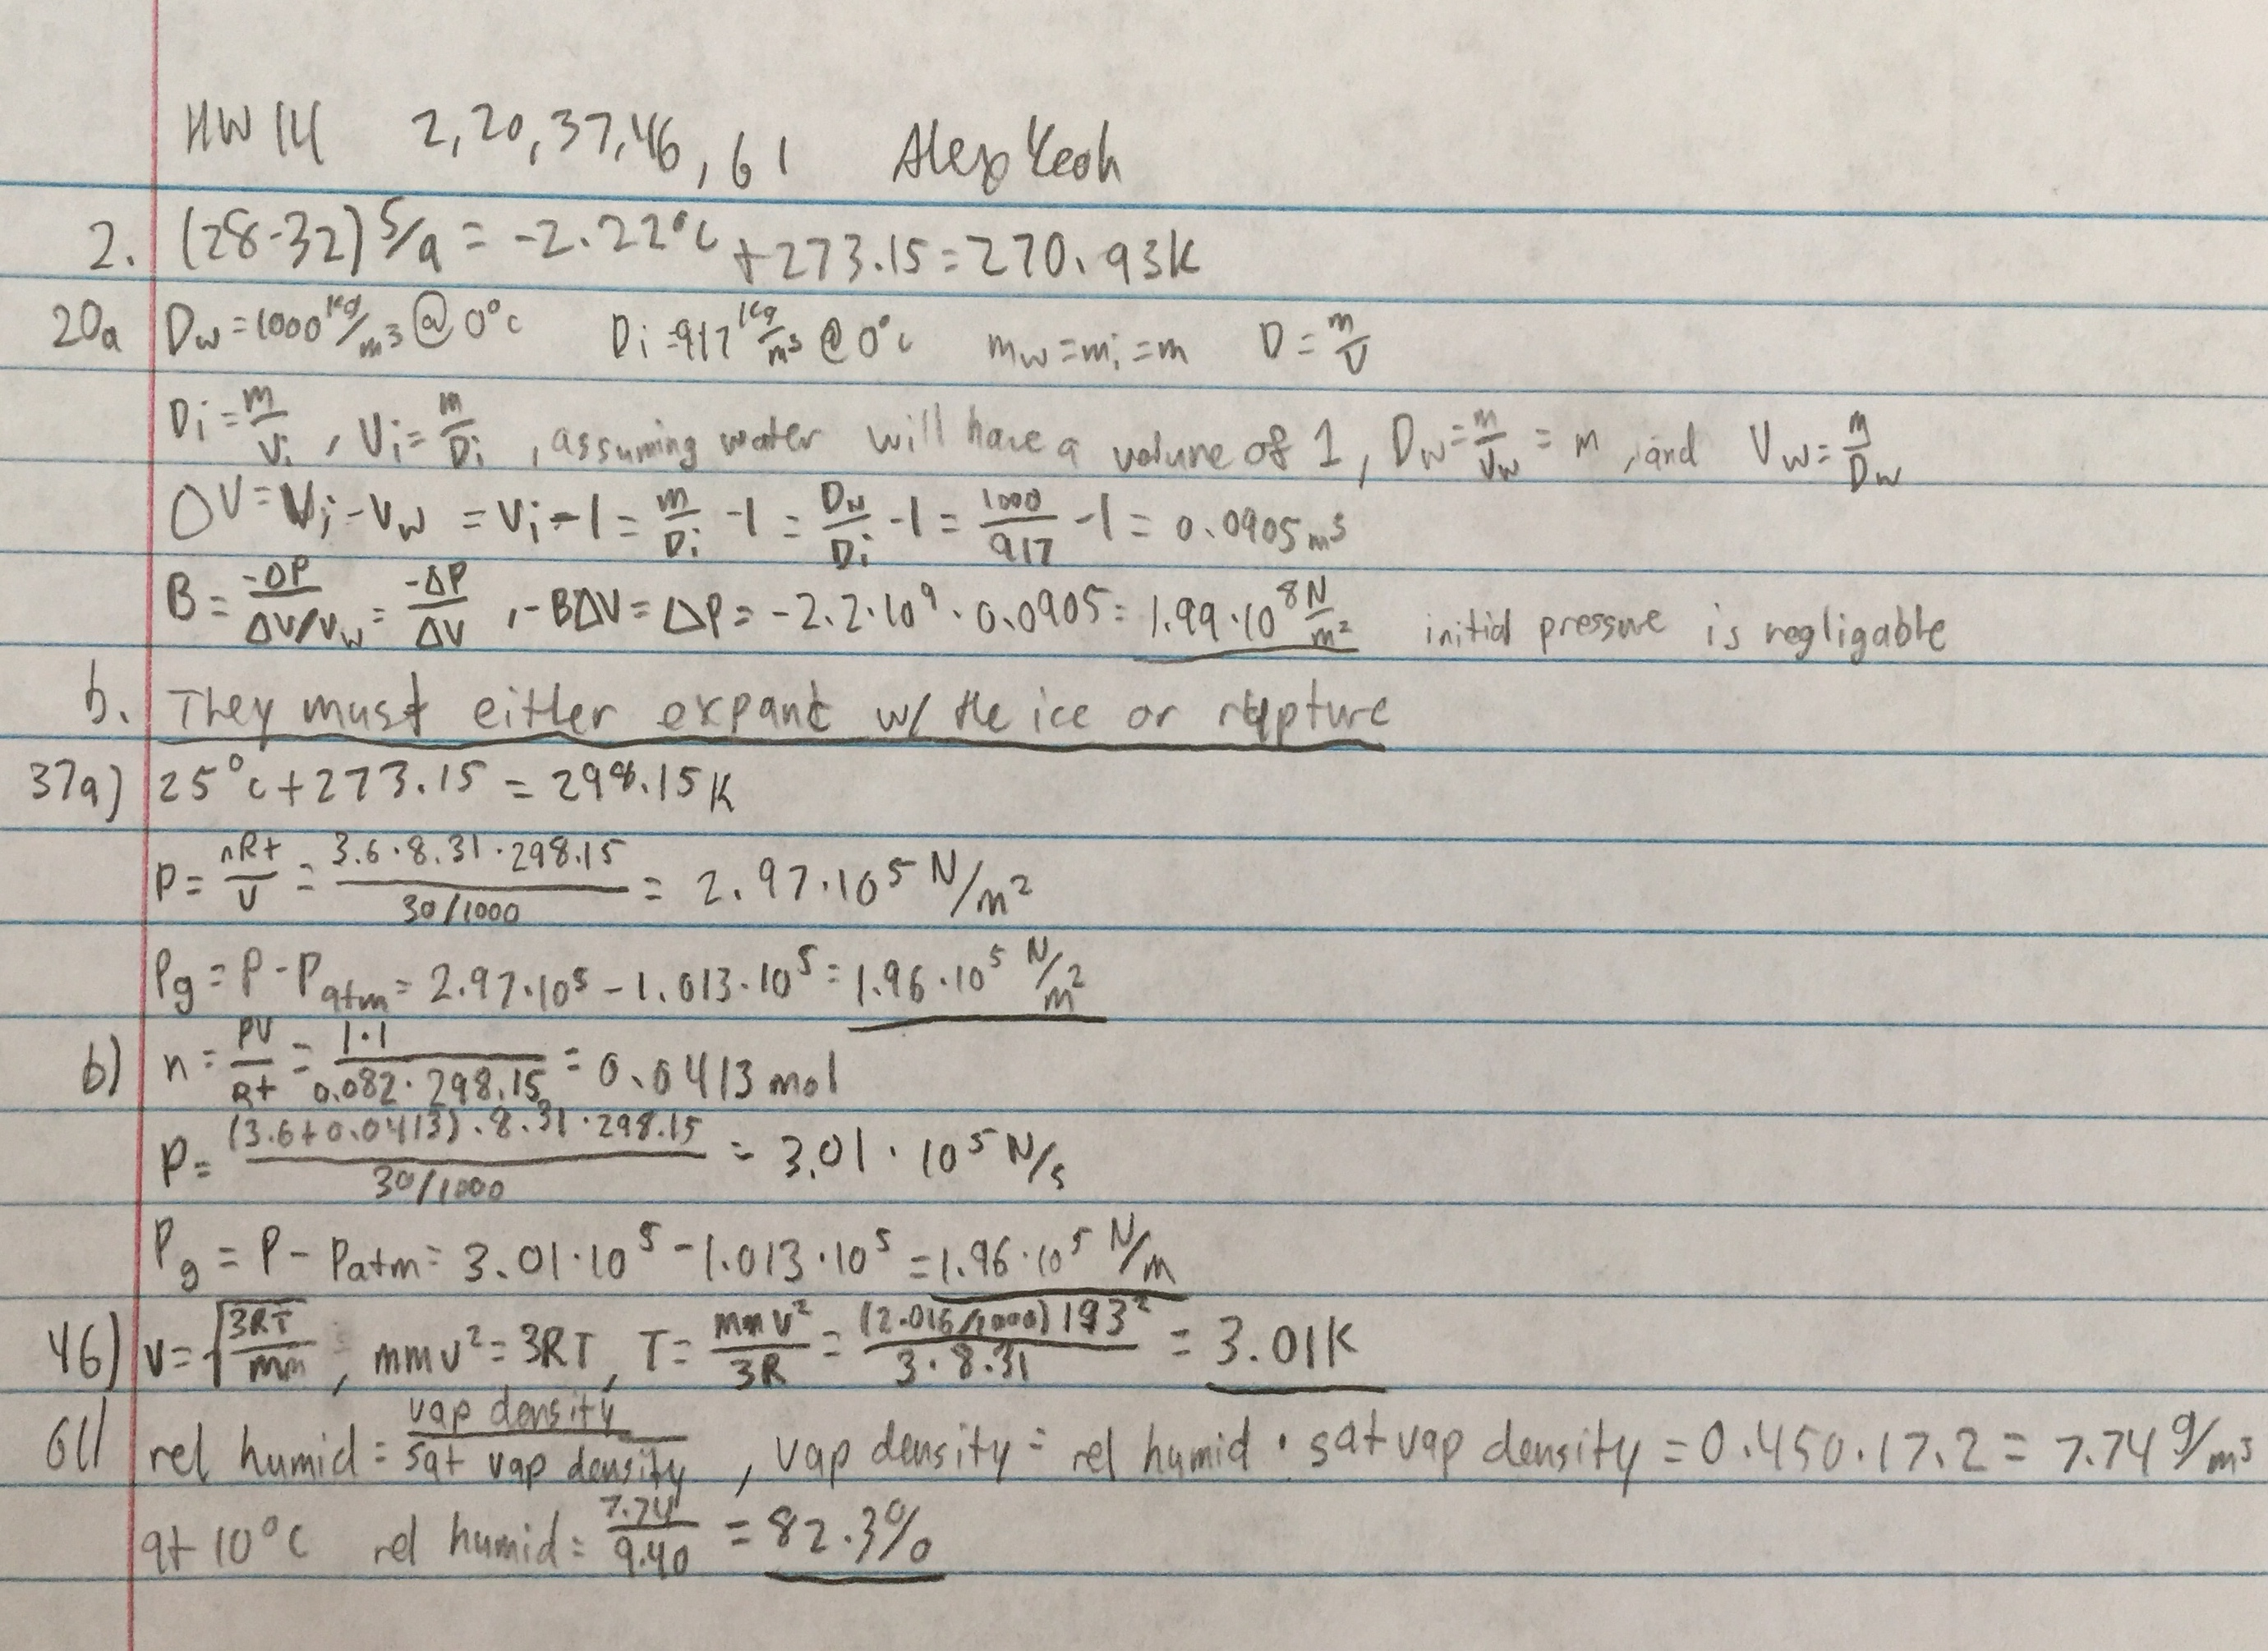 HW 14 2,20,37,46,61 Alex Yeoh
2. (28-32)5/9 = -2.22°C +273.15=270.93K
20a Dw=1000 kg/m³ @ 0°C Di=917 kg/m³ @ 0°C mw=mi=m D=m/V
Di=m/Vi, Vi=m/Di, assuming water will have a volume of 1, Dw=m/Vw=m, and Vw=m/Dw
ΔV=Vi-Vw=Vi-1=m/Di-1=Dw/Di-1=1000/917-1=0.0905m³
B=-ΔP/(ΔV/Vw)=-ΔP/ΔV, -BΔV=ΔP=-2.2·10⁹·0.0905=1.99·10⁸ N/m² initial pressure is negligable
b. They must either expand w/ the ice or rupture
37a) 25°C+273.15=298.15K
P=nRt/V=3.6·8.31·298.15/(30/1000)=2.97·10⁵ N/m²
Pg=P-Patm=2.97·10⁵-1.013·10⁵=1.96·10⁵ N/m²
b) n=PV/Rt=1·1/(0.082·298.15)=0.0413 mol
P=(3.6+0.0413)·8.31·298.15/(30/1000)=3.01·10⁵ N/s
Pg=P-Patm=3.01·10⁵-1.013·10⁵=1.96·10⁵ N/m
46) v=√(3RT/mm), mmv²=3RT, T=mmv²/3R=(2.016/1000)193²/(3·8.31)=3.01K
61) rel humid=vap density/sat vap density, vap density=rel humid·sat vap density=0.450·17.2=7.74 g/m³
at 10°C rel humid=7.74/9.40=82.3%